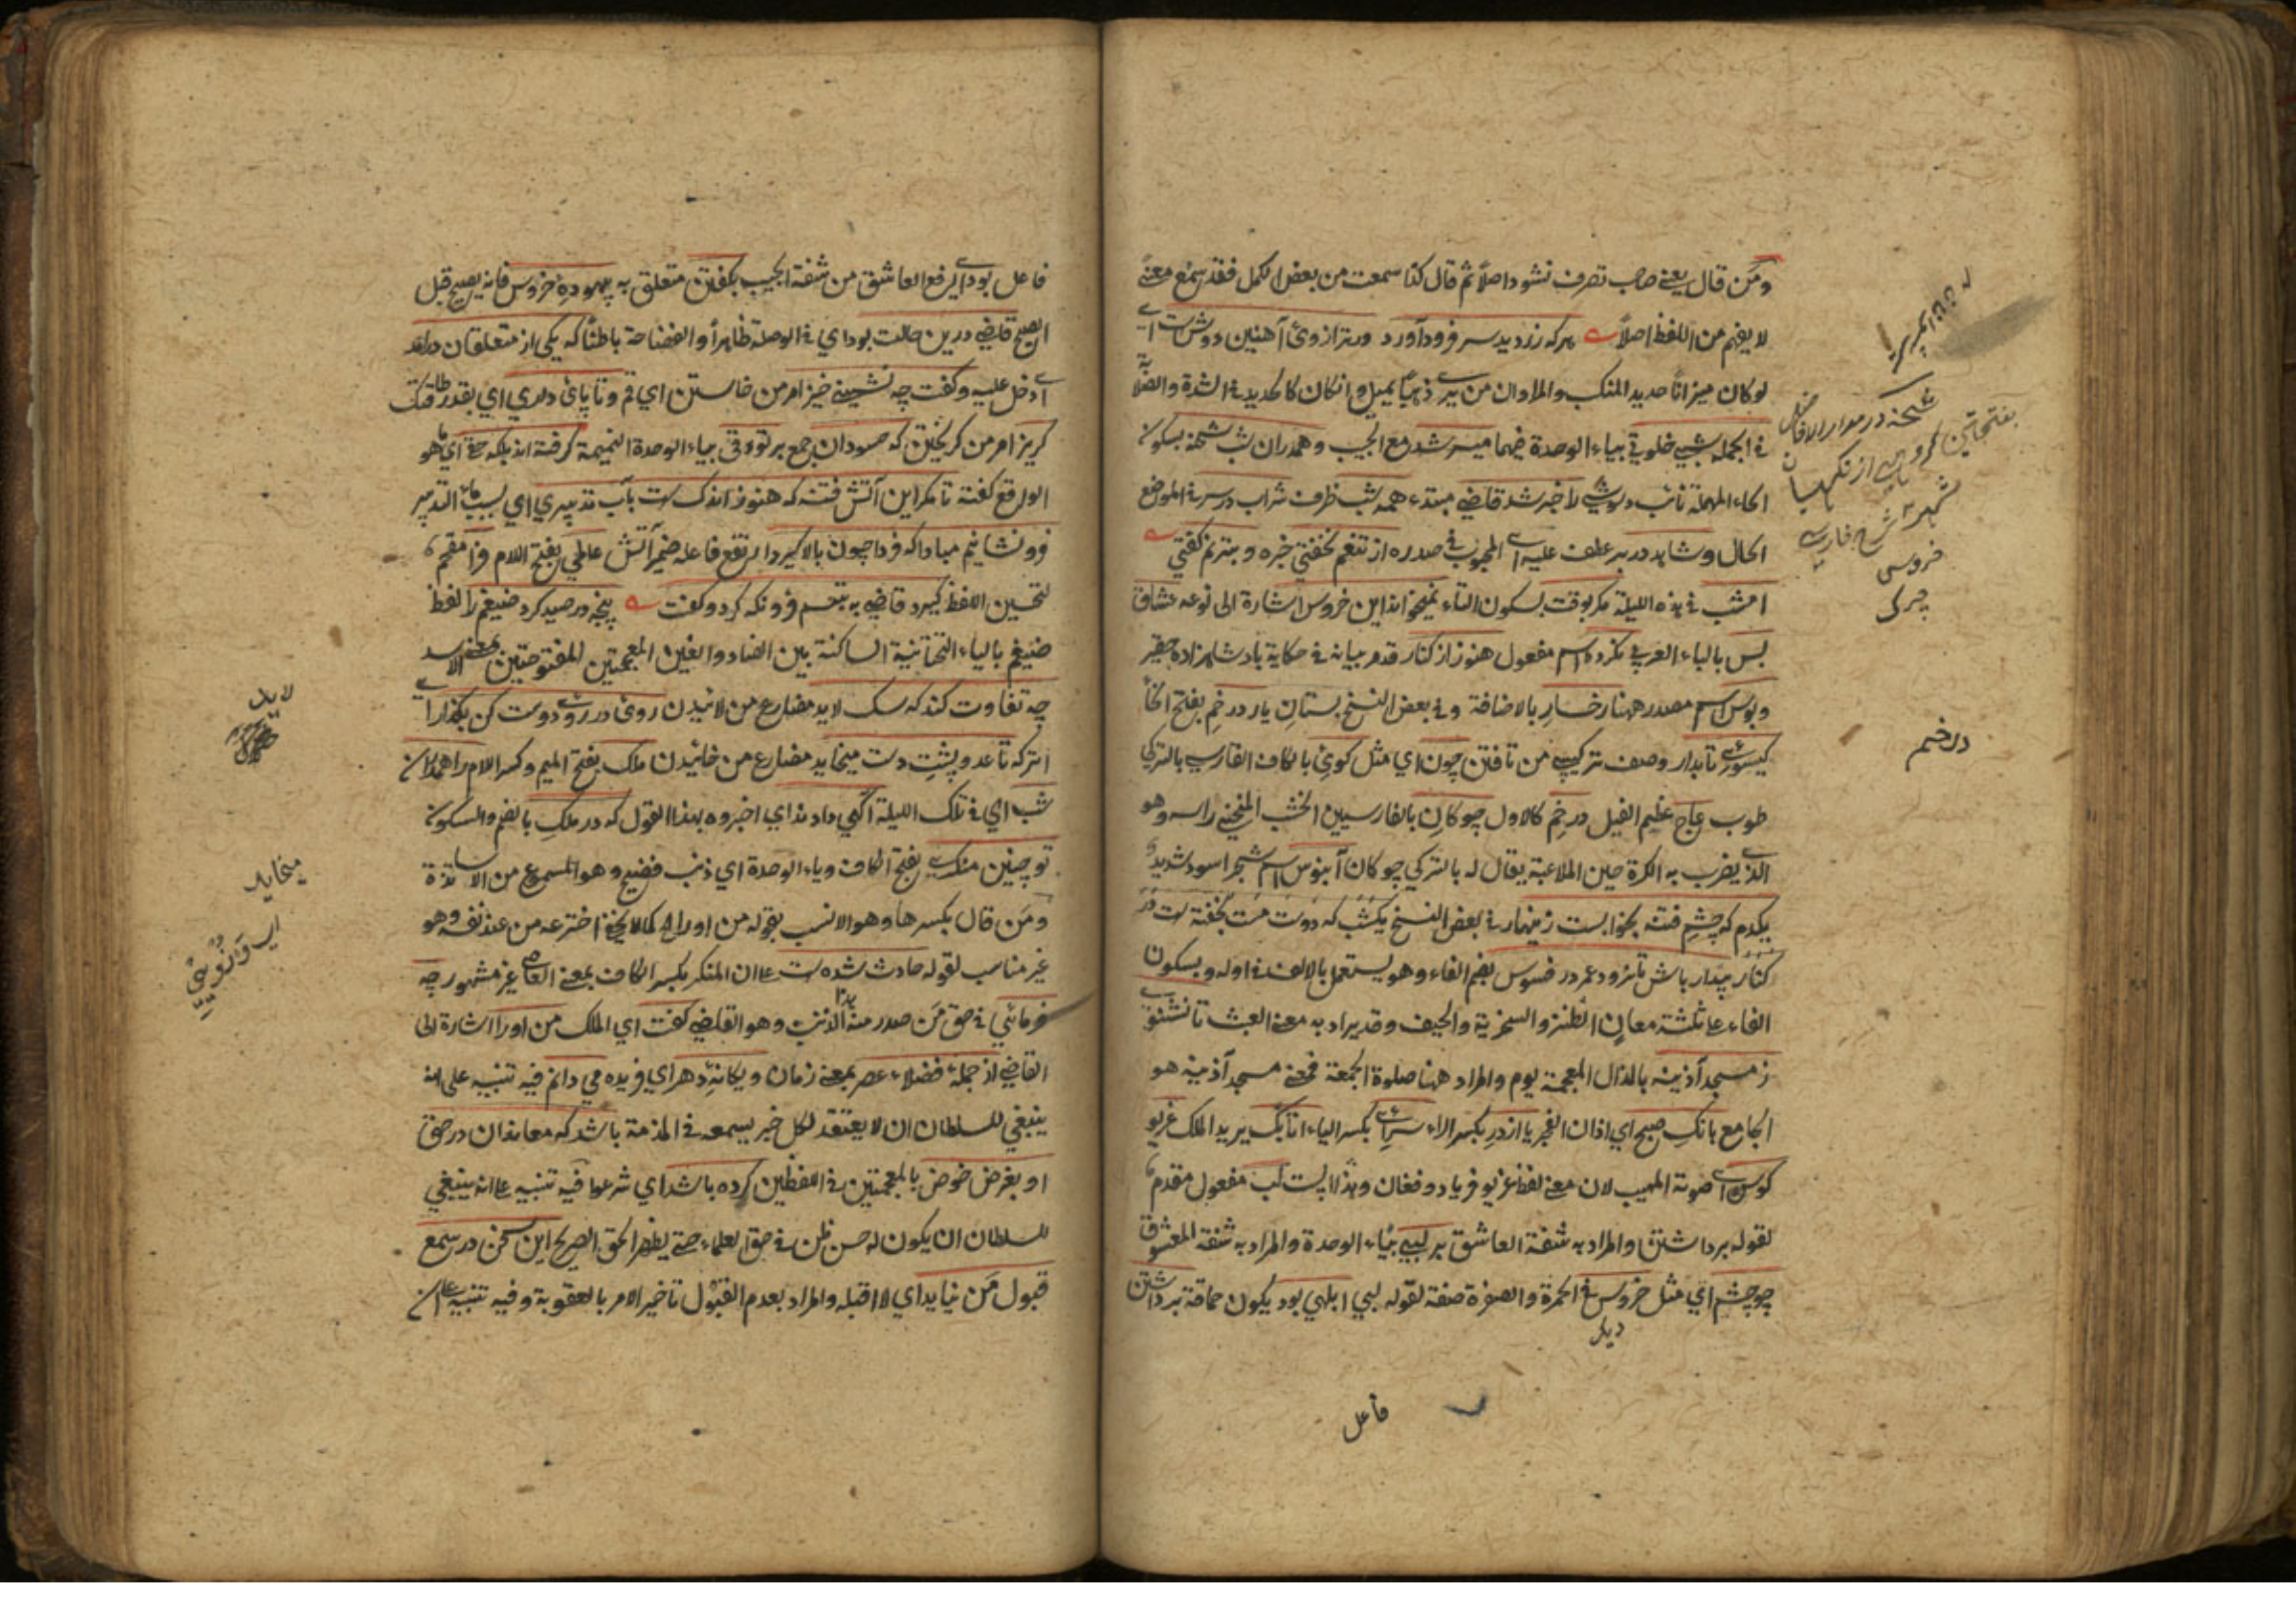 ومن قال يعني صاحب تصرف نشود اصلاً ثم قال كذا سمعت من بعض الكمل فقد سمع معنى
لا يفهم من اللفظ اصلاً هركه زر ديد سر فرود آورد ورترازوى آهنين دوش است اي
لو كان ميزانا حديد المنكب والمراد ان من يرى ذهبا يميل وان كان كالحديد في الشدة والصلابة
في الجمله شبي خلوتي بياء الوحدة فيهما ميسر شد مع الحبيب وهمدران شب شحنه بسكون
الحاء المهملة نائب را خبر شد قاضي مبتدء همه شب ظرف شراب در سر في الموضع
الحال وشاهد در بر عطف عليه اي المحبوب في صدره از تنعم نخفتي خبره وبترنم گفتي
امشب في هذه الليلة مگر بوقت بسكون التاء نميخواند اين خروس اشارة الى نوعه عشاق
بس بالباء العربي نكرده اسم مفعول هنوز از كنار قدم بيانه في حكاية پادشاهزاده حقير
وبوس اسم مصدر ههنا رخسار بالاضافة وفي بعض النسخ پستان يار در خم بفتح الخاء
گيسوى تابدار وصف تركيبي من تافتن چون اي مثل كوى بالكاف الفارسي بالتركي
طوب عاج عظم الفيل در خم كالاول چوكان بالفارسيين الخشب المنحني راسه وهو
الذي يضرب به الكرة حين الملاعبة يقال له بالتركي چوكان آبنوس اسم شجر اسود شديد
يكدم كه چشم فتنه بخوابست زينهار في بعض النسخ يكشب كه دوست مست بخفته است در
كنار بيدار باش تا نرود عمر در فسوس بضم الفاء وهو يستعمل بالالف في اوله وبسكون
الفاء على ثلثة معان الطنز والسخرية والحيف وقد يراد به معنى العبث تا نشنوى
ز مسجد آذينه بالذال المعجمة يوم والمراد ههنا صلوة الجمعة فمعنى مسجد آذينه هو
الجامع بانك صبح اي اذان الفجر يا از در بكسر الراء سراى بكسر الياء اتابك يريد الملك غريو
كوس اي صوته المهيب لان معنى لفظ غريو فرياد وفغان وهذا لب مفعول مقدم
لقوله برداشتن والمراد به شفة العاشق بر لبي بياء الوحدة والمراد به شفة المعشوق
چو چشم اي مثل خروس في الحمرة والصفرة صفة لقوله لبي ابلهي بود يكون حماقة برداشتن
فاعل
شحنه در مدار الافاضل
بفتحتين گروهي از نگهبان
شهر شرح فارسي
خروس
درخم
فاعل بود اي رفع العاشق من شفة الحبيب بگفتن متعلق به بيهوده خروس فانه يصيح قبل
الصبح قاضي درين حالت بود اي في الوصلة ظاهراً والفضاحة باطناً كه يكي از متعلقان درآمد
اي دخل عليه وگفت چه نشيني خيز امر من خاستن اي قم وتا پاى داري اي بقدر طاقتك
گريز امر من گريختن كه حسودان جمع بر تو دقي بياء الوحدة النميمة گرفته اند بلكه حق اي ما هو
الواقع گفته تا مگر اين آتش فتنه كه هنوز اندك است بآب تدبيري اي بسبب ماء التدبير
فرو نشانيم مبادا كه فردا چون بالا گيرد ارتفع فاعله ضمير آتش عالمي بفتح اللام مقحم
لتحسين اللفظ گيرد قاضي به تبسم فرو نگه كرد وگفت پنجه در صيد كرد ضيغم را لفظ
ضيغم بالياء التحتانية الساكنة بين الضاد والغين المعجمتين المفتوحتين بمعنى الاسد
چه تفاوت كند كه سگ لايد مضارع من لائيدن روى در روى دوست كن بگذار اي
اترك تا عدو پشت دست ميخايد مضارع من خائيدن ملك بفتح الميم وكسر اللام را همدران
شب اي في تلك الليلة آگهي دادند اي اخبروه بهذا القول كه در ملك بالضم والسكون
تو چنين منكري بفتح الكاف وياء الوحدة اي ذنب فضيح وهو المسموع من الاساتذة
ومن قال بكسرها وهو الانسب بقوله من او را كما لا يخفى اخترعه من عند نفسه وهو
غير مناسب لقوله حادث شده است على ان المنكر بكسر الكاف بمعنى العاصي غير مشهور چه
فرمائي في حق من صدر منه هذا الذنب وهو القاضي گفت اي الملك من او را اشارة الى
القاضي از جمله فضلاء عصر بمعنى زمان ويگانه دهر اي فريده مي دانم فيه تنبيه على انه
ينبغي للسلطان ان لا يعتقد لكل خبر يسمعه في المذمة باشد كه معاندان در حق
او بغرض خوض بالمعجمتين في اللفظين كرده باشد اي شرعوا فيه تنبيه على انه ينبغي
للسلطان ان يكون له حسن ظن في حق العلماء حتى يظهر الحق الصريح اين سخن در سمع
قبول من نيايد اي لا اقبله والمراد بعدم القبول تاخير الامر بالعقوبة وفيه تنبيه على ان
لايد
ميخايد